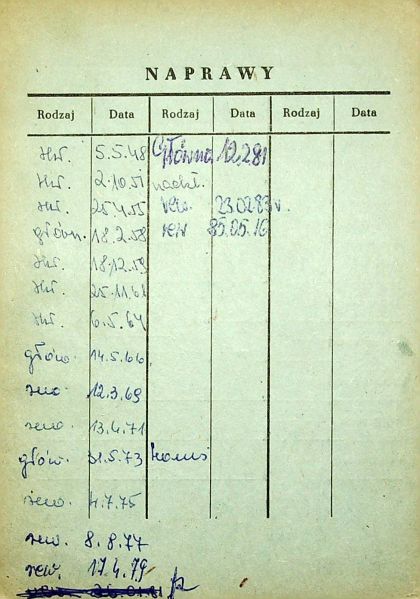 NAPRAWY
Rodzaj Data Rodzaj Data Rodzaj Data
śr. 5.5.48 Główna 12.2.81
śr. 2.10.51
śr. 25.4.55 rew. 23.02.83 r.
główn. 18.2.58 rew 85.05.16
śr. 18.12.59
śr. 25.11.61
śr. 6.5.64
głów. 14.5.66
rew. 12.3.69
rew. 13.4.71
głów. 31.5.73
rew. 4.7.75
rew. 8.8.77
rew. 17.4.79